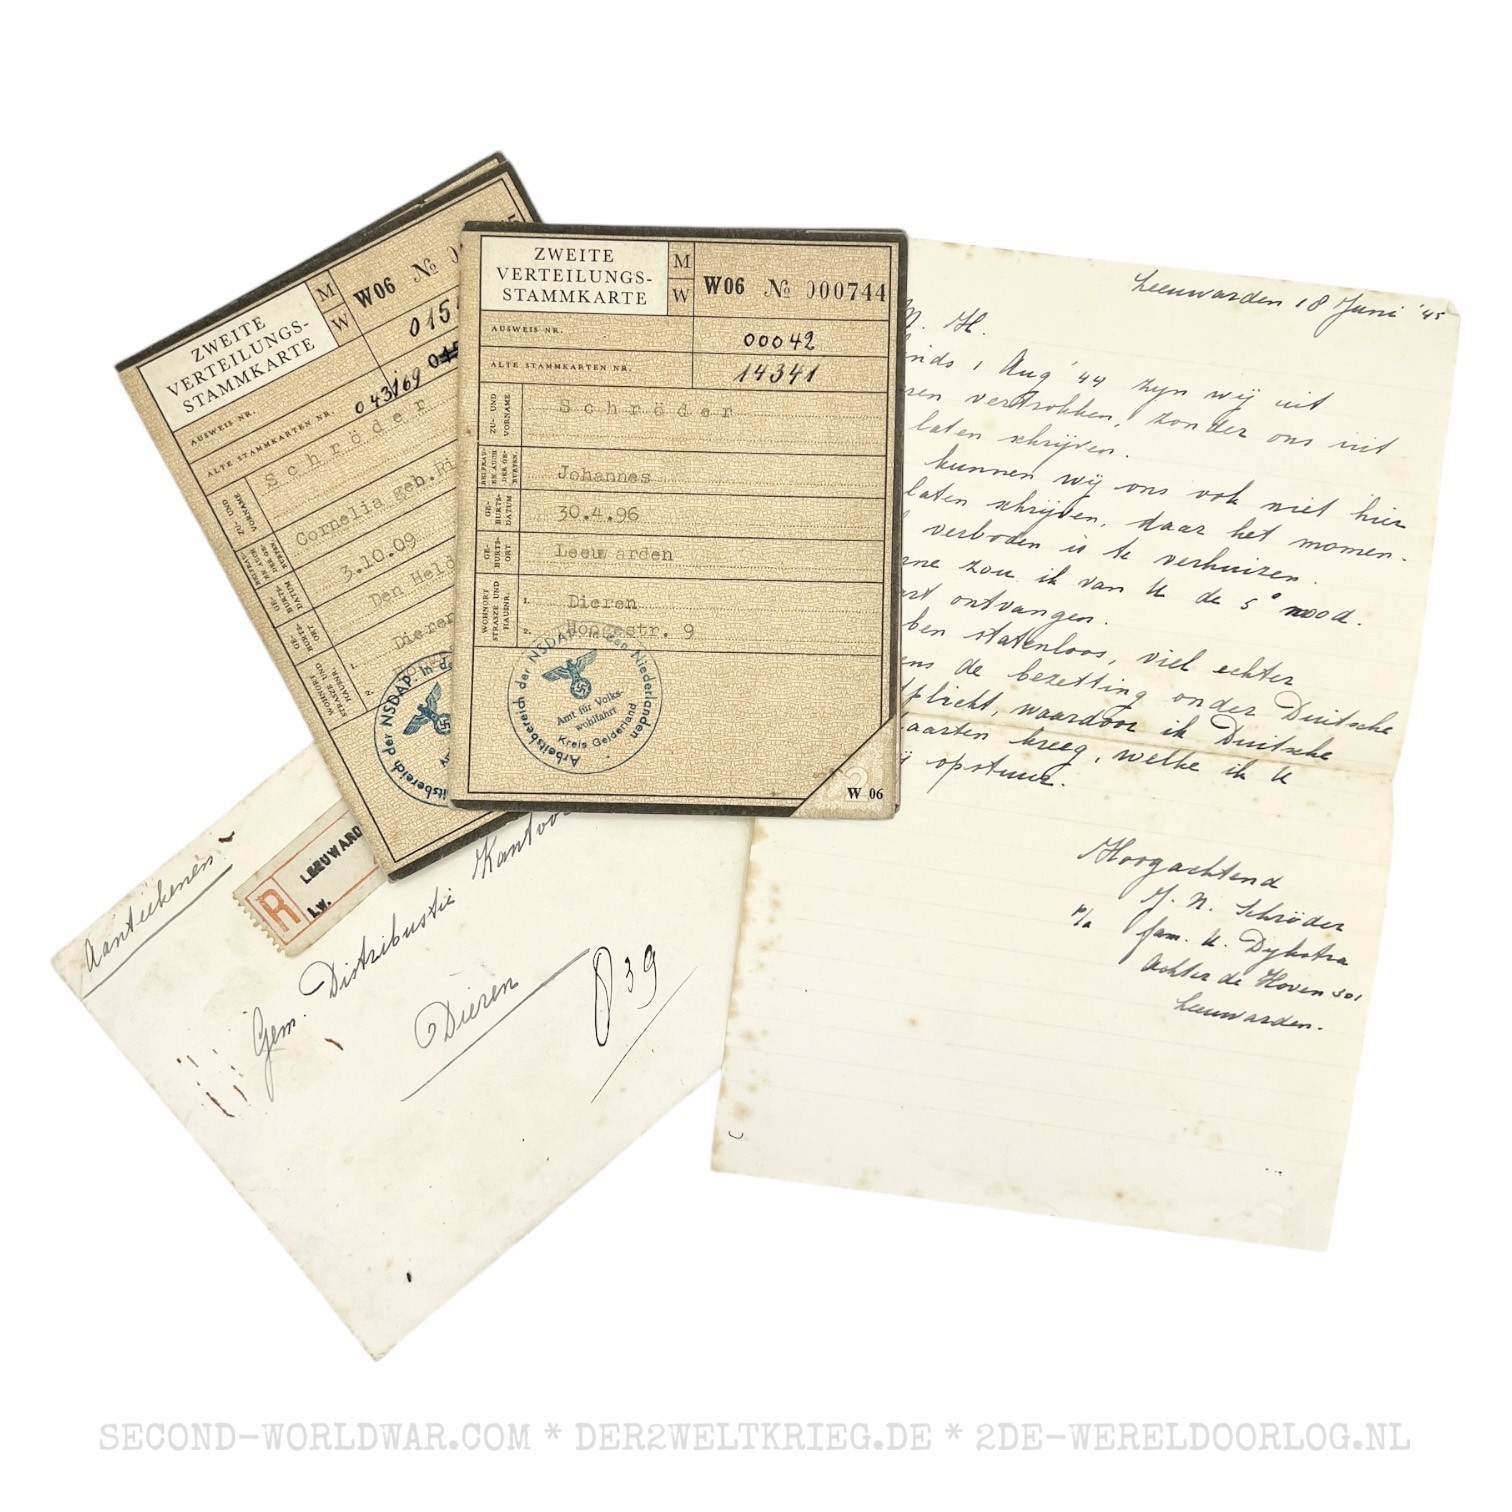 ZWEITE
VERTEILUNGS-
STAMMKARTE
M
W
W06 №
AUSWEIS NR.
015
ALTE STAMMKARTEN NR.
043169
ZU- UND
VORNAME
Schröder
BEI FRAU-
EN AUCH
DER GE-
BURTEN.
Cornelia geb.
GE-
BURTS-
DATUM
3.10.09
GE-
BURTS-
ORT
Den Held
WOHNORT
STRASZE UND
HAUSNR.
1.
Dieren
2.
Arbeitsbereich der NSDAP in de
ZWEITE
VERTEILUNGS-
STAMMKARTE
M
W
W06 № 000744
AUSWEIS NR.
00042
ALTE STAMMKARTEN NR.
14341
ZU- UND
VORNAME
Schröder
BEI FRAU-
EN AUCH
DER GE-
BURTEN.
Johannes
GE-
BURTS-
DATUM
30.4.96
GE-
BURTS-
ORT
Leeuwarden
WOHNORT
STRASZE UND
HAUSNR.
1.
Dieren
2.
Hoogestr. 9
Arbeitsbereich der NSDAP in den Niederlanden
Amt für Volks-
wohlfahrt
Kreis Gelderland
W 06
Leeuwarden 18 Juni '45
M. H.
inds 1 Aug '44 zyn wij uit
ren vertrokken, zonder ons uit
laten schrijven.
kunnen wij ons ook niet hier
laten schrijven, daar het momen-
verboden is te verhuizen.
rne zou ik van U de 5e nood.
rt ontvangen.
ben statenloos, viel echter
ens de bezetting onder Duitsche
plicht, waardoor ik Duitsche
kaarten kreeg, welke ik U
opstuur.
Hoogachtend
J. N. Schröder
p/a fam. K. Dijkstra
Achter de Hoven 301
Leeuwarden.
Aanteekenen.
R
LEEUWARD
Lw.
Gem. Distributie Kantoor
Dieren
839
SECOND-WORLDWAR.COM * DER2WELTKRIEG.DE * 2DE-WERELDOORLOG.NL